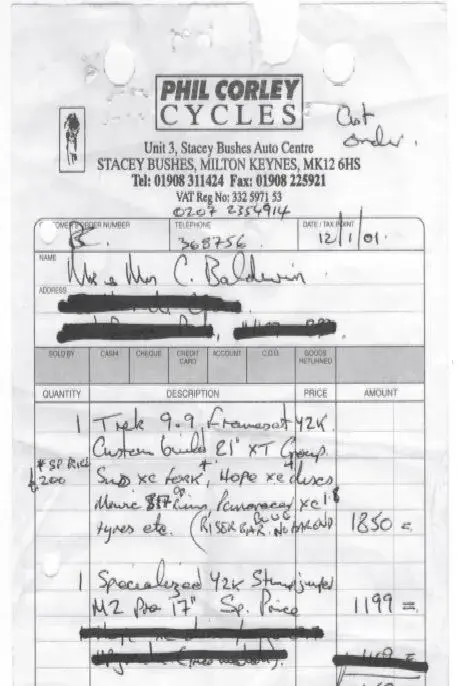 PHIL CORLEY
CYCLES
Cust order.
Unit 3, Stacey Bushes Auto Centre
STACEY BUSHES, MILTON KEYNES, MK12 6HS
Tel: 01908 311424 Fax: 01908 225921
VAT Reg No: 332 5971 53
0207 2354914
CUSTOMER ORDER NUMBER TELEPHONE DATE / TAX POINT
368756. 12/1/01.
NAME Mr & Mrs C. Baldwin
ADDRESS
SOLD BY CASH CHEQUE CREDIT CARD ACCOUNT C.O.D. GOODS RETURNED
QUANTITY DESCRIPTION PRICE AMOUNT
1 Trek 9.9 Frameset Y2K
Custom build 21" XT Group
* SP PRICE Sups xc fork*, Hope xc discs
200 Mavic 517 Rims, Panaracer xc
tyres etc. (RISER BAR. NO BAR END 1850 =
1 Specialized Y2K Stumpjumper
M2 Pro 17" Sp. Price 1199 =